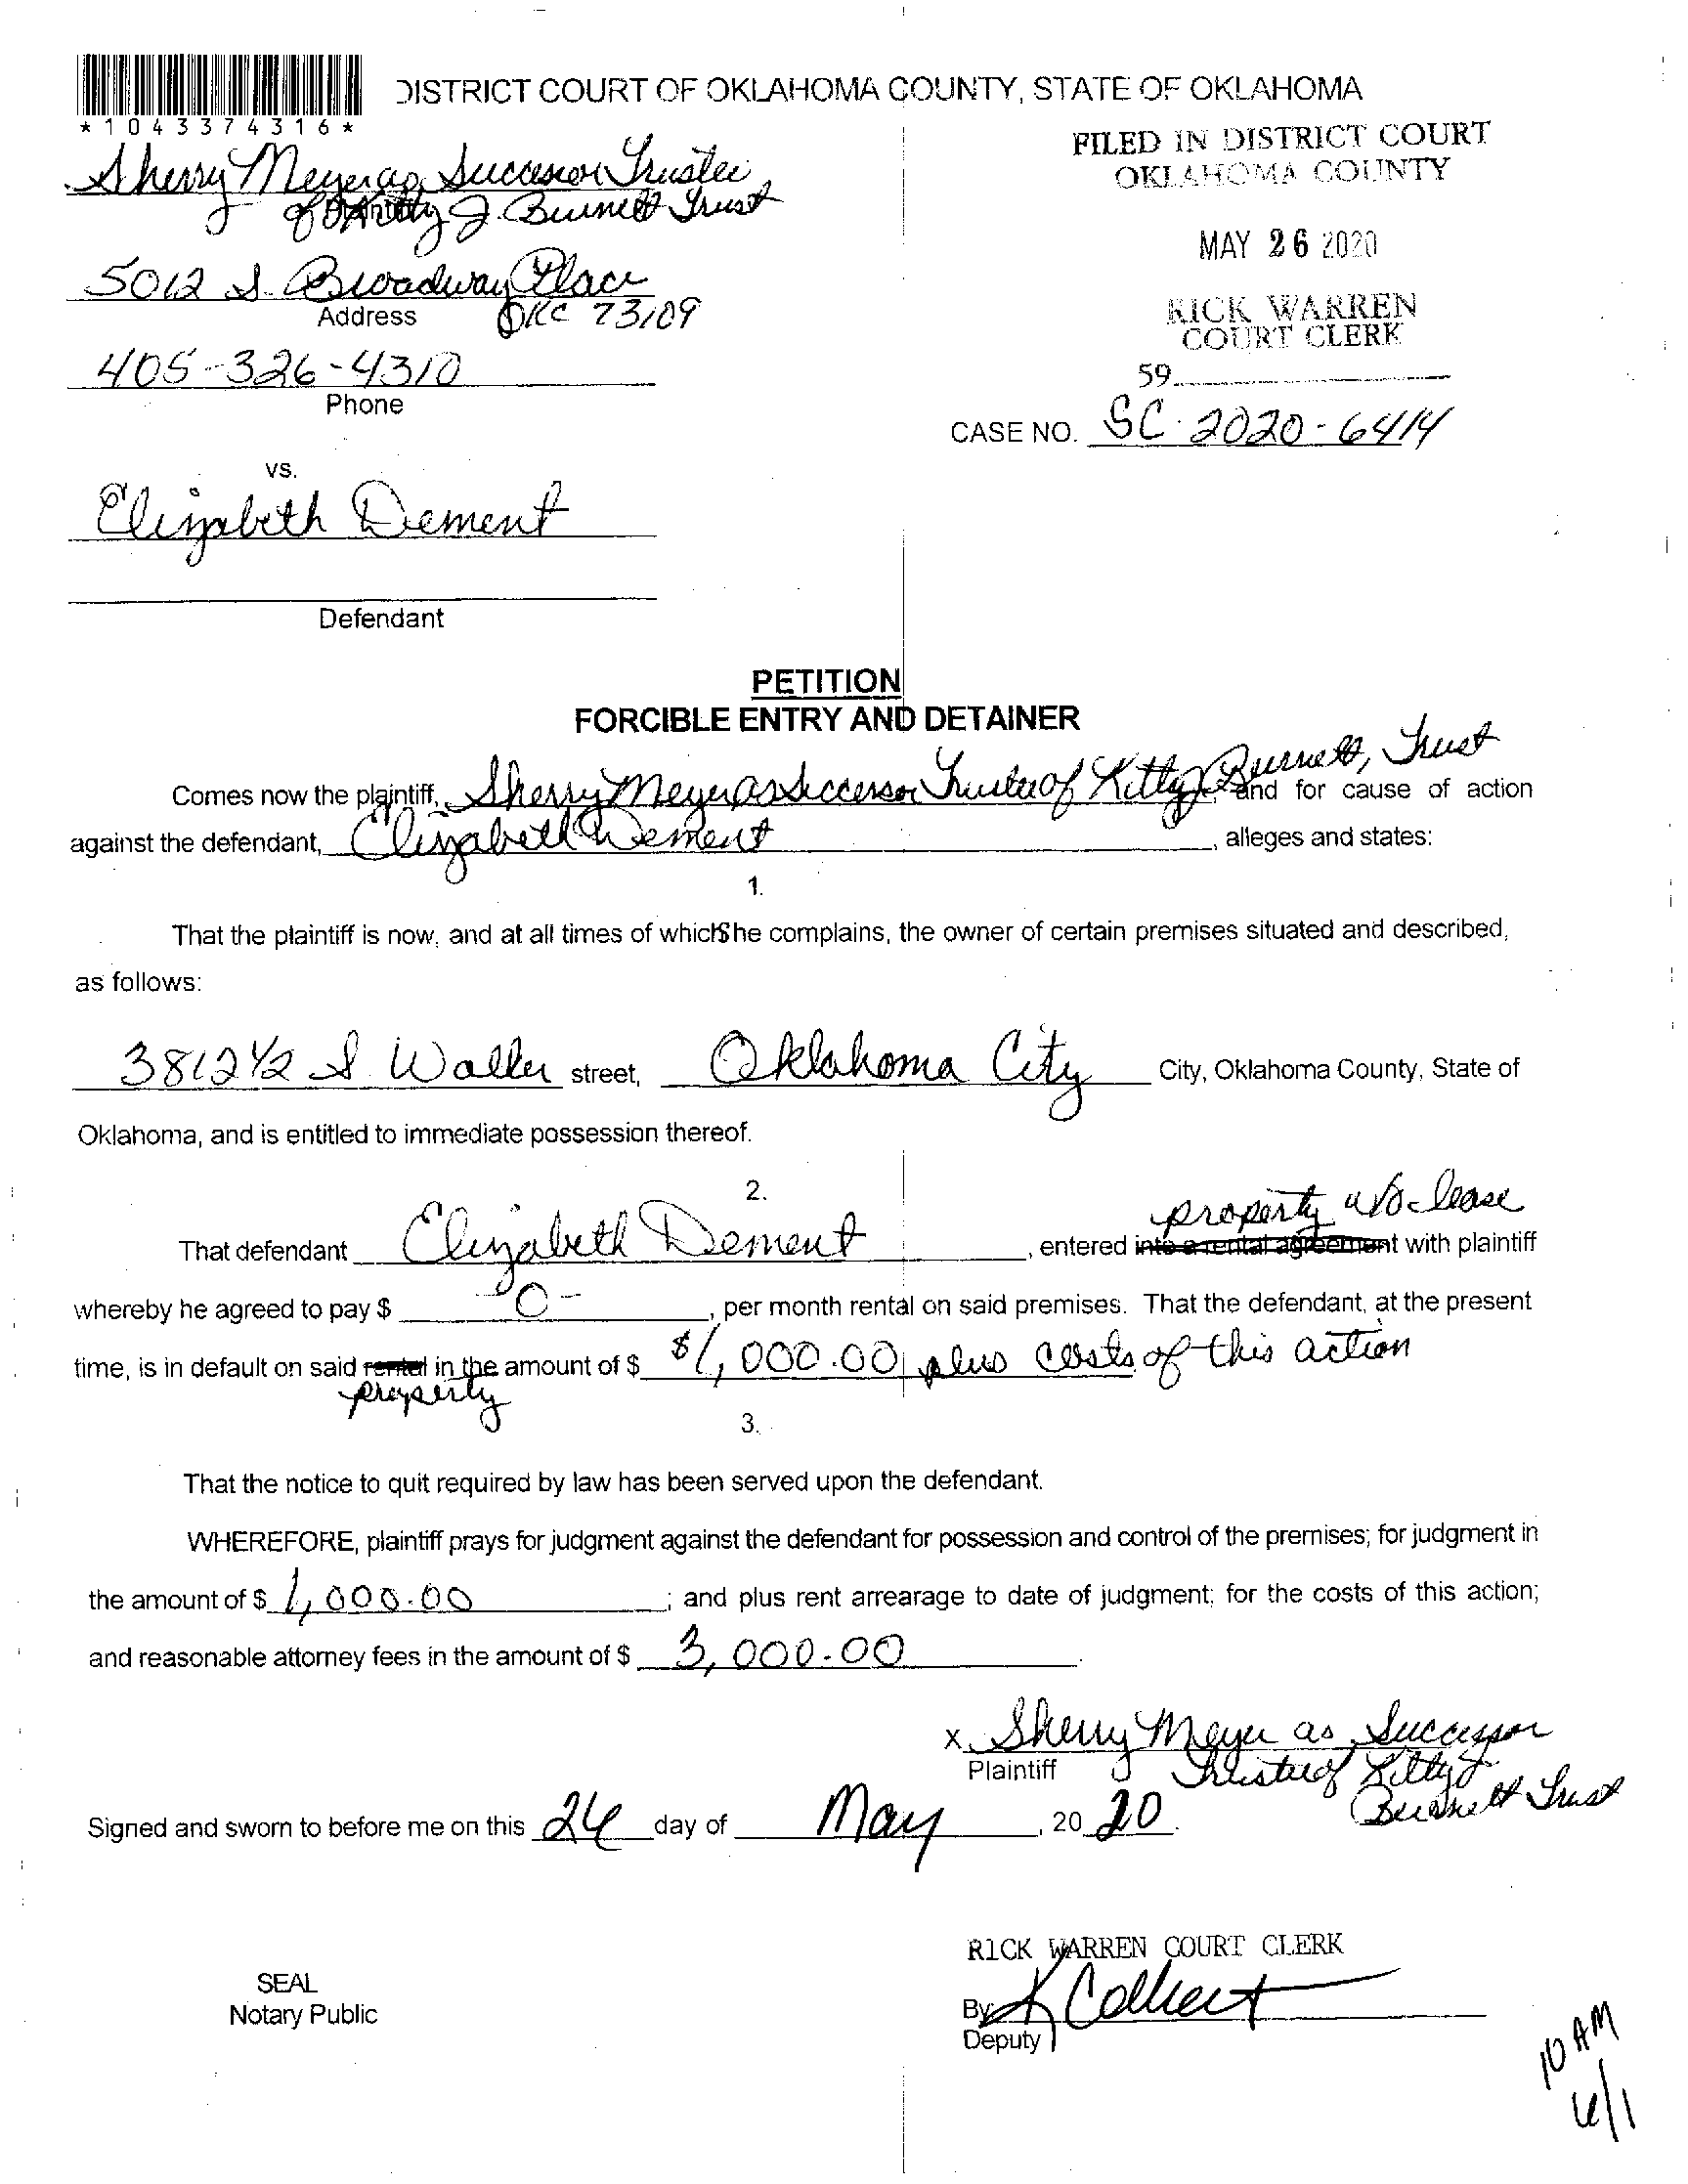 DISTRICT COURT OF OKLAHOMA COUNTY, STATE OF OKLAHOMA
*1043374316*
FILED IN DISTRICT COURT
OKLAHOMA COUNTY
Sherry Meyer as Successor Trustee
of Kitty J. Burnett Trust
Plaintiff
MAY 26 2020
5012 S. Broadway Place
Address OKC 73109
RICK WARREN
COURT CLERK
405-326-4310
Phone
59
CASE NO. SC-2020-6414
vs.
Elizabeth Dement
Defendant
PETITION
FORCIBLE ENTRY AND DETAINER
Comes now the plaintiff, Sherry Meyer as Successor Trustee of Kitty J. Burnett, Trust, and for cause of action
against the defendant, Elizabeth Dement, alleges and states:
1.
That the plaintiff is now, and at all times of which She complains, the owner of certain premises situated and described,
as follows:
3812 1/2 S. Walker street, Oklahoma City City, Oklahoma County, State of
Oklahoma, and is entitled to immediate possession thereof.
2.
property w/o lease
That defendant Elizabeth Dement, entered into a rental agreement with plaintiff
whereby he agreed to pay $ -0-, per month rental on said premises. That the defendant, at the present
time, is in default on said rental in the amount of $ $1,000.00 plus costs of this action
property
3.
That the notice to quit required by law has been served upon the defendant.
WHEREFORE, plaintiff prays for judgment against the defendant for possession and control of the premises; for judgment in
the amount of $ 1,000.00; and plus rent arrearage to date of judgment; for the costs of this action;
and reasonable attorney fees in the amount of $ 3,000.00.
X Sherry Meyer as Successor
Plaintiff Trustee of Kitty J
Burnett Trust
Signed and sworn to before me on this 26 day of May, 20 20.
RICK WARREN COURT CLERK
SEAL
Notary Public
By K Colbert
Deputy
10 AM
6/1